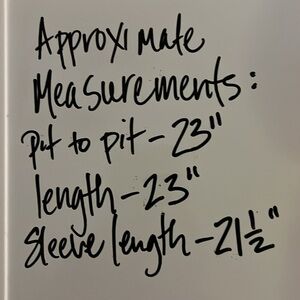 Approximate
Measurements:
Pit to pit - 23"
length - 23"
Sleeve length - 21 1/2"